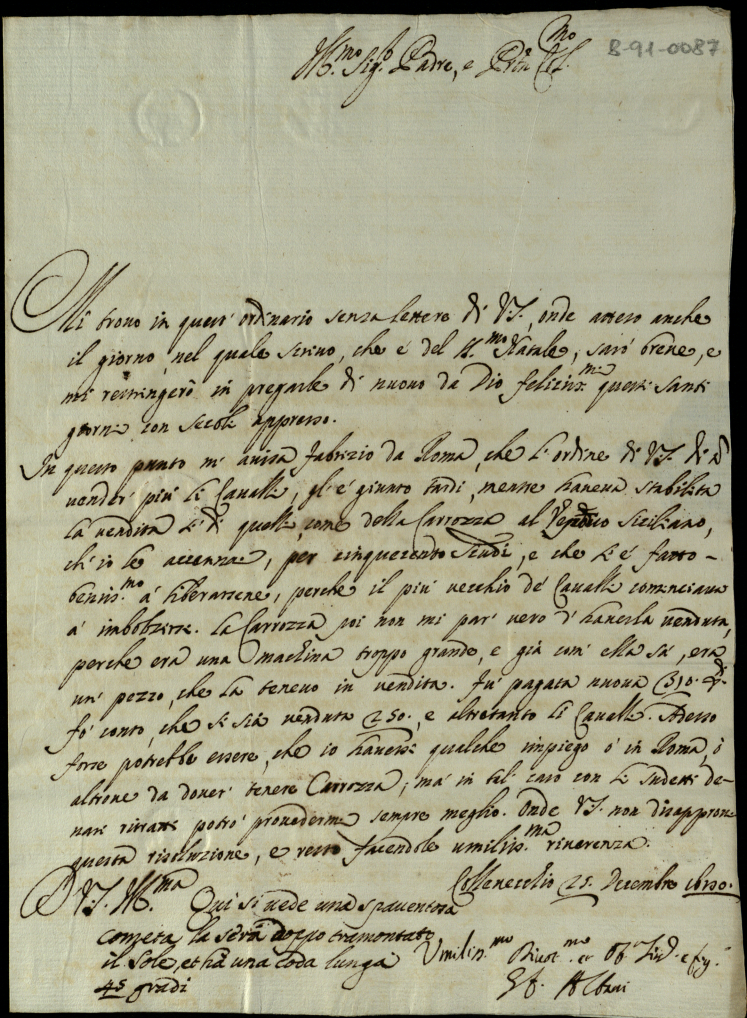 B-91-0087
Ill.mo Sig.r Padre, e Pr̃on Col.mo
Mi trovo in quest' ordinario senza lettere di VS. onde atteso anche
il giorno nel quale scrivo, che è del S.mo Natale, sarò breve, e
mi restringerò in pregarle di nuovo da Dio feliciss.mi questi santi
giorni con secoli appresso.
In questo punto m' avisa Fabrizio da Roma, che l' ordine di VS. di nõ
vender più li Cavalli, gl' è giunto tardi, mentre haveva stabilita
la vendita e di quelli, come della Carrozza al Siciliano,
ch' io le accennai, per cinquecento scudi, e che s' è fatto
beniss.mo a' liberarsene, perche il più vecchio de' Cavalli cominciava
a' imbolsirsi. La Carrozza poi non mi par' vero d' haverla venduta,
perche era una machina troppo grande, e già com' ella sà, era
un' pezzo, che la tenevo in vendita. Fu' pagata nuova 310.
fò conto, che si sia venduta 250., e altretanto li Cavalli. Adesso
forse potrebbe essere, che io havessi qualche impiego ò in Roma, ò
altrove da dover' tenere Carrozza, mà in tal' caso con li sudetti de-
nari ritratti potrò provedermi sempre meglio. Onde VS. non disapprovi
questa risoluzione, e resto facendole umiliss.ma riverenza.
Collevecchio 25. Decembre 1680.
D VS. Ill.ma Qui si vede una spaventosa
cometa la sera doppo tramontato
il Sole, et hà una coda lunga
45 gradi
Umiliss.mo Divot.mo et Ob. e fig.
Albani